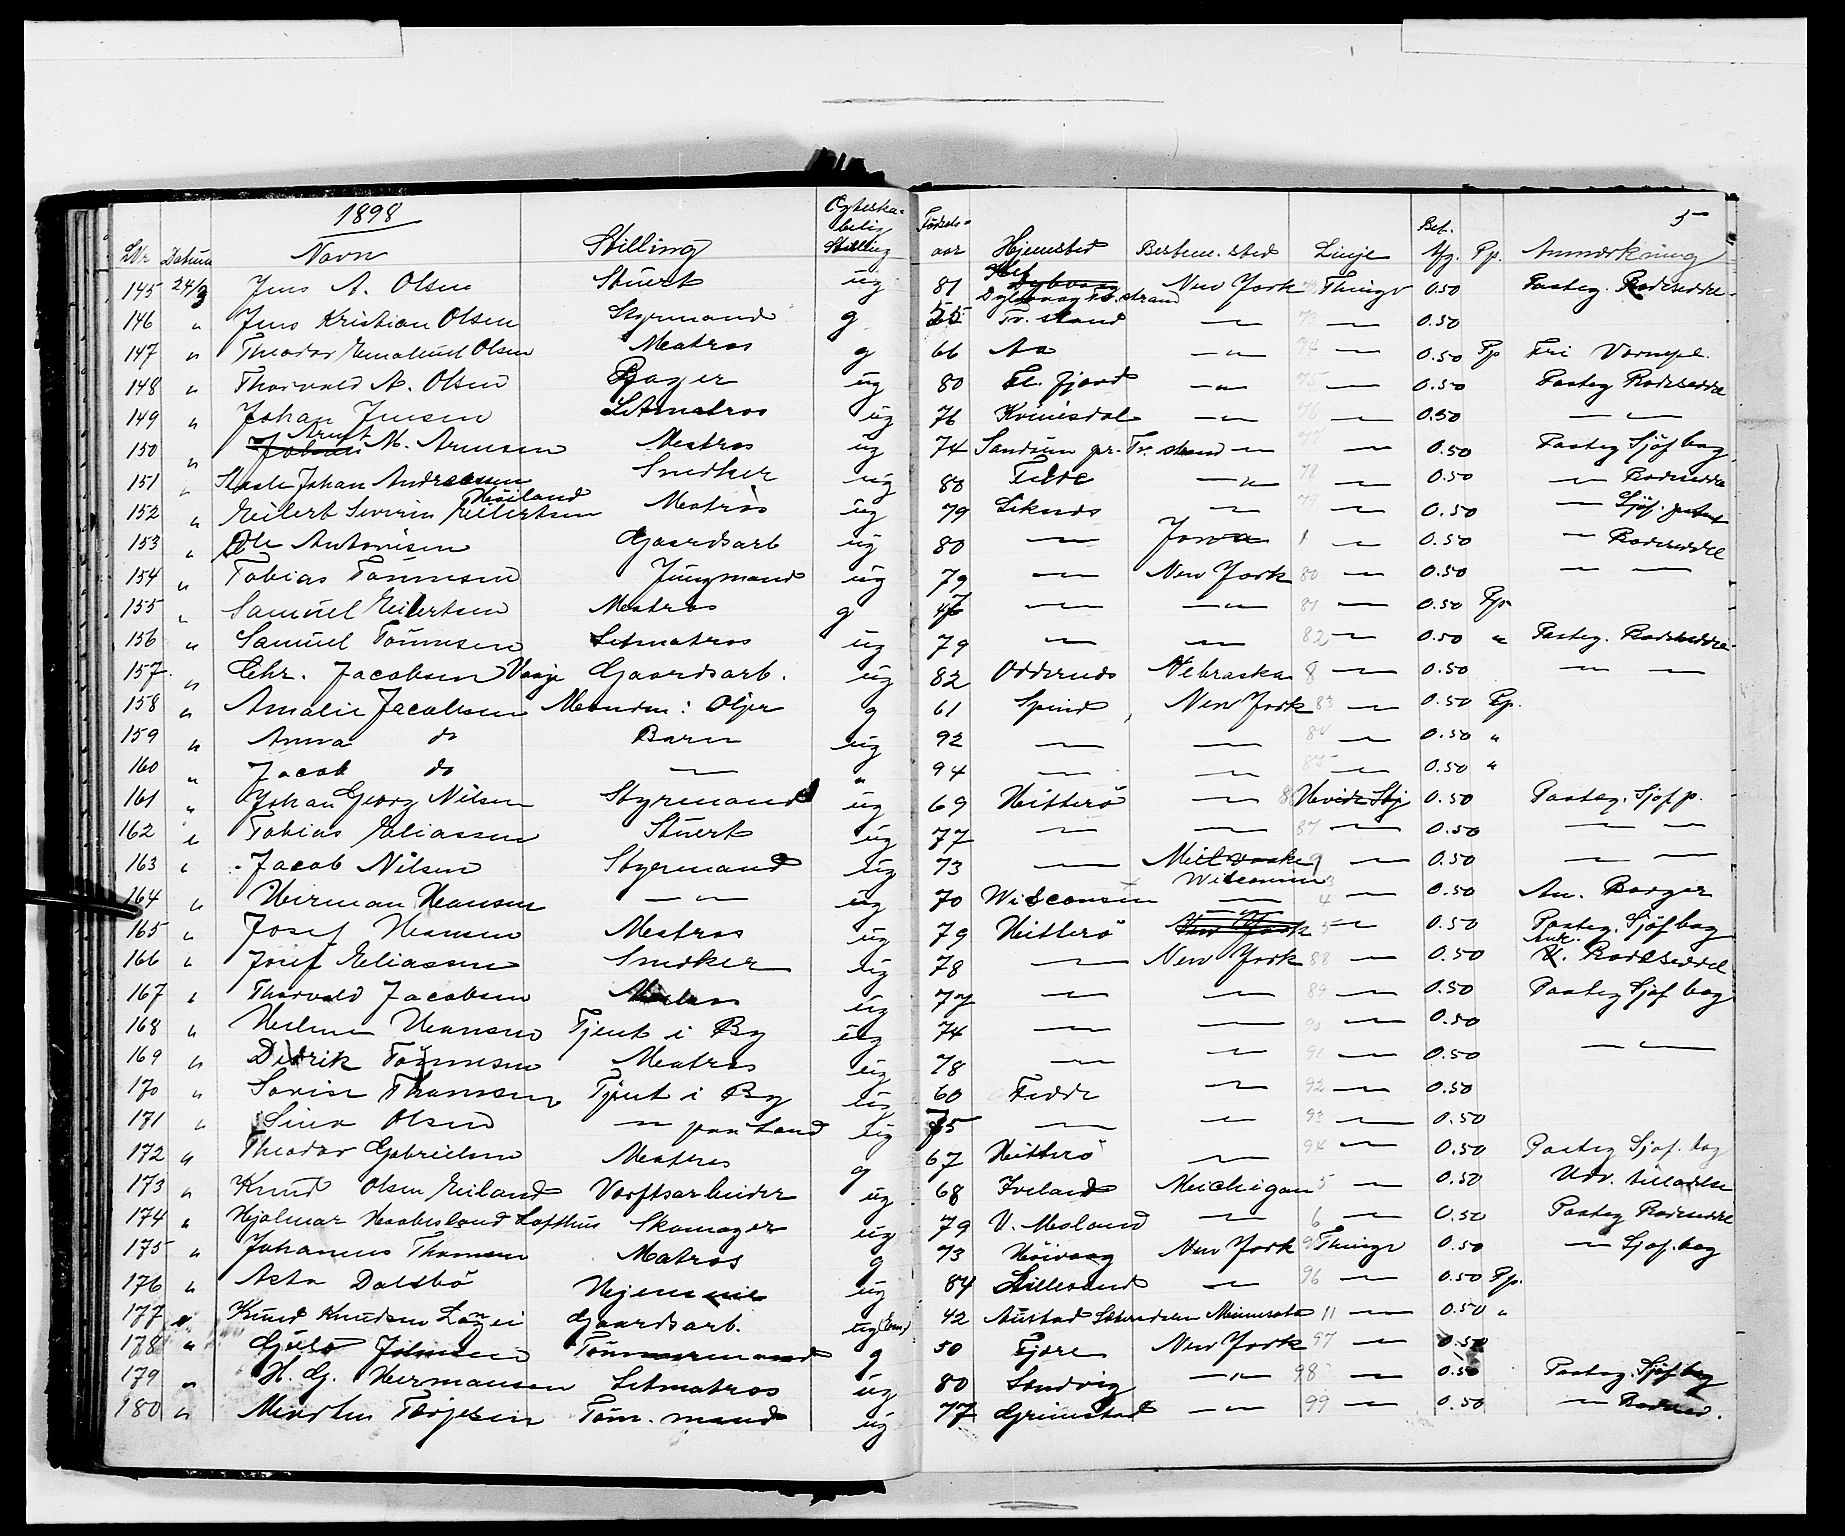 1898
5
LNr Datum Navn Stilling Egteska-belig Stilling Fødsels-aar Hjemsted Bestem. sted Linje Bet. Pp. Anmærkning
145 24/9 Jens A. Olsen Stuert ug 81 Dybvaag Tv. strand New York Thingv 0.50 Pasteg. Rodeseddel
146 " Jens Kristian Olsen Styrmand g 55 Tv. strand — " — — 0.50
147 " Theodor Emanuel Olsen Matros g 66 Aa — " — — 0.50 Pp Fri Vernepl.
148 " Thorvald A. Olsen Bager ug 80 Fl. fjord — " — — 0.50 Pasteg Rodeseddel
149 " Johan Jensen Letmatros ug 76 Kvinesdal — " — — 0.50 — " —
150 " Arnt M. Arnesen Matros ug 74 Sandum pr. Tv. strand — " — 0.50 Pasteg Sjøf bog
151 " Johan Andreassen Snedker ug 80 Fede — " — 78 — 0.50 — Rodeseddel
152 " Eilert Severin Eilertsen Høiland Matros ug 79 Leknes — " — 79 — 0.50 — Sjøf. patent
153 " Ole Antonisen Gaardsarb ug 80 — Jowa 1 — 0.50 — Rodeseddel
154 " Tobias Tønnesen Jungmand ug 79 — New York 80 — 0.50 — —
155 " Samuel Eilertsen Matros g 47 — — " — 81 — 0.50 Pp.
156 " Samuel Tønnesen Letmatros ug 79 — — 82 — 0.50 " Pasteg. Rodeseddel
157 " Chr. Jacobsen Vaage Gaardsarb. ug 82 Oddernes Nebraska 8 — 0.50 — —
158 " Amalie Jacobsen Manden: Oljer g 61 Spind New York 83 — 0.50 Pp.
159 " Anna do Barn ug 92 — — 84 — 0.50 "
160 " Jacob do — " 94 — — 85 — 0.50 "
161 " Johan Georg Nilsen Styrmand ug 69 Hitterö — Hvide Stj 0.50 Pasteg. Sjøf p.
162 " Tobias Eliassen Stuert ug 77 — — 87 — 0.50 — —
163 " Jacob Nilsen Styrmand ug 73 — Milwaukee Wisconsin — 0.50 — —
164 " Herman Hansen — " — ug 70 Wisconsin — 4 — 0.50 Am. Borger
165 " Josef Hansen Matros ug 79 Hitterö New York 5 — 0.50 Pasteg. Sjøf bog
166 " Josef Eliassen Snedker ug 78 — New York 88 — 0.50 Rodeseddel
167 " Thorvald Jacobsen Matros ug 77 — — 89 — 0.50 Pasteg Sjøf bog
168 " Helene Hansen Tjent i By ug 74 — — 90 — 0.50
169 " Didrik Tønnesen Matros ug 78 — — 91 — 0.50 — —
170 " Sorine Thomsen Tjent i By ug 60 Fedde — 92 — 0.50
171 " Sina Olsen — " paa Land ug 75 — — 93 — 0.50
172 " Theodor Gabrielsen Matros g 67 Hitterö — 94 — 0.50 Pasteg Sjøf. bog
173 " Knud Olsen Eiland Værftsarbeider ug 68 Iveland Michigan 5 — 0.50 Udv. tilladelse
174 " Hjalmar Haabesland Lofthus Skomager ug 79 V. Moland — 6 — 0.50 Pasteg Rodeseddel
175 " Johannes Thomsen Matros g 73 Høivaag New York Thingv 0.50 — Sjøf. bog
176 " Asta Dalsbö Hjemme ug 84 Lillesand — 96 — 0.50 Pp.
177 " Knud Knudsen Langei Gaardsarb. ug (Enm) 42 Austad Sætersdalen Minnesota 11 — 0.50 "
178 " Gjulo Johnsen Tømmermand g 50 Fjære New York 97 — 0.50
179 " H. G. Hermansen Letmatros ug 80 Landvig — " — 98 — 0.50 Pasteg. Sjøf bog
180 " Marthin Terjesen Tøm. mand ug 77 Grimstad — " — 99 — 0.50 — Rodesed.